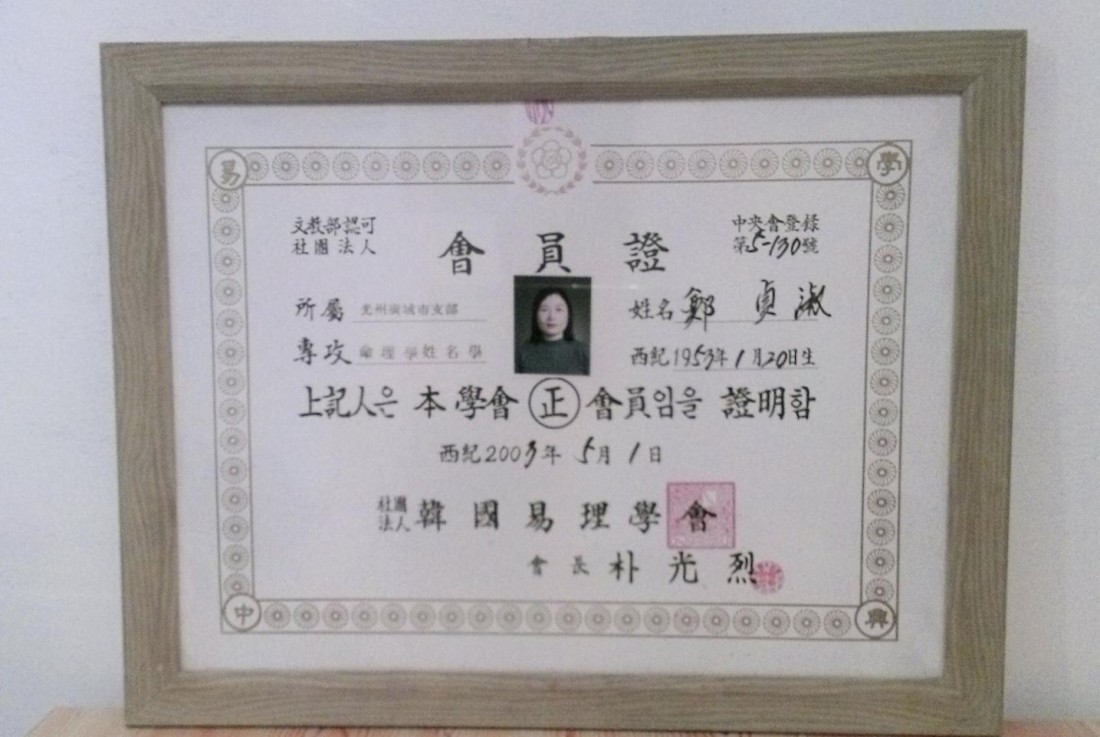 易 學
文教部認可
社團法人
中央會登錄
第5-130號
會員證
所屬 光州廣域市支部
姓名 鄭貞淑
專攻 命理學姓名學
西紀1953年1月20日生
上記人은 本學會 正 會員임을 證明함
西紀2003年5月1日
社團法人 韓國易理學會
會長 朴光烈
中 興